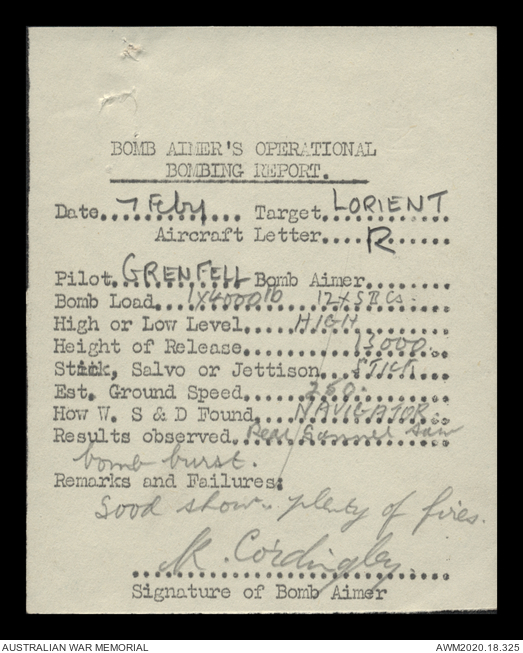 BOMB AIMER'S OPERATIONAL
BOMBING REPORT.
Date 7 Feby Target LORIENT
Aircraft Letter R
Pilot GRENFELL Bomb Aimer
Bomb Load 1x4000lb 12xSBCs.
High or Low Level HIGH
Height of Release 13000.
Stick, Salvo or Jettison STICK
Est. Ground Speed 260.
How W. S & D Found NAVIGATOR.
Results observed Rear Gunner saw
bomb burst.
Remarks and Failures:
Good show. plenty of fires.
K. Cordingley
Signature of Bomb Aimer
AUSTRALIAN WAR MEMORIAL
AWM2020.18.325